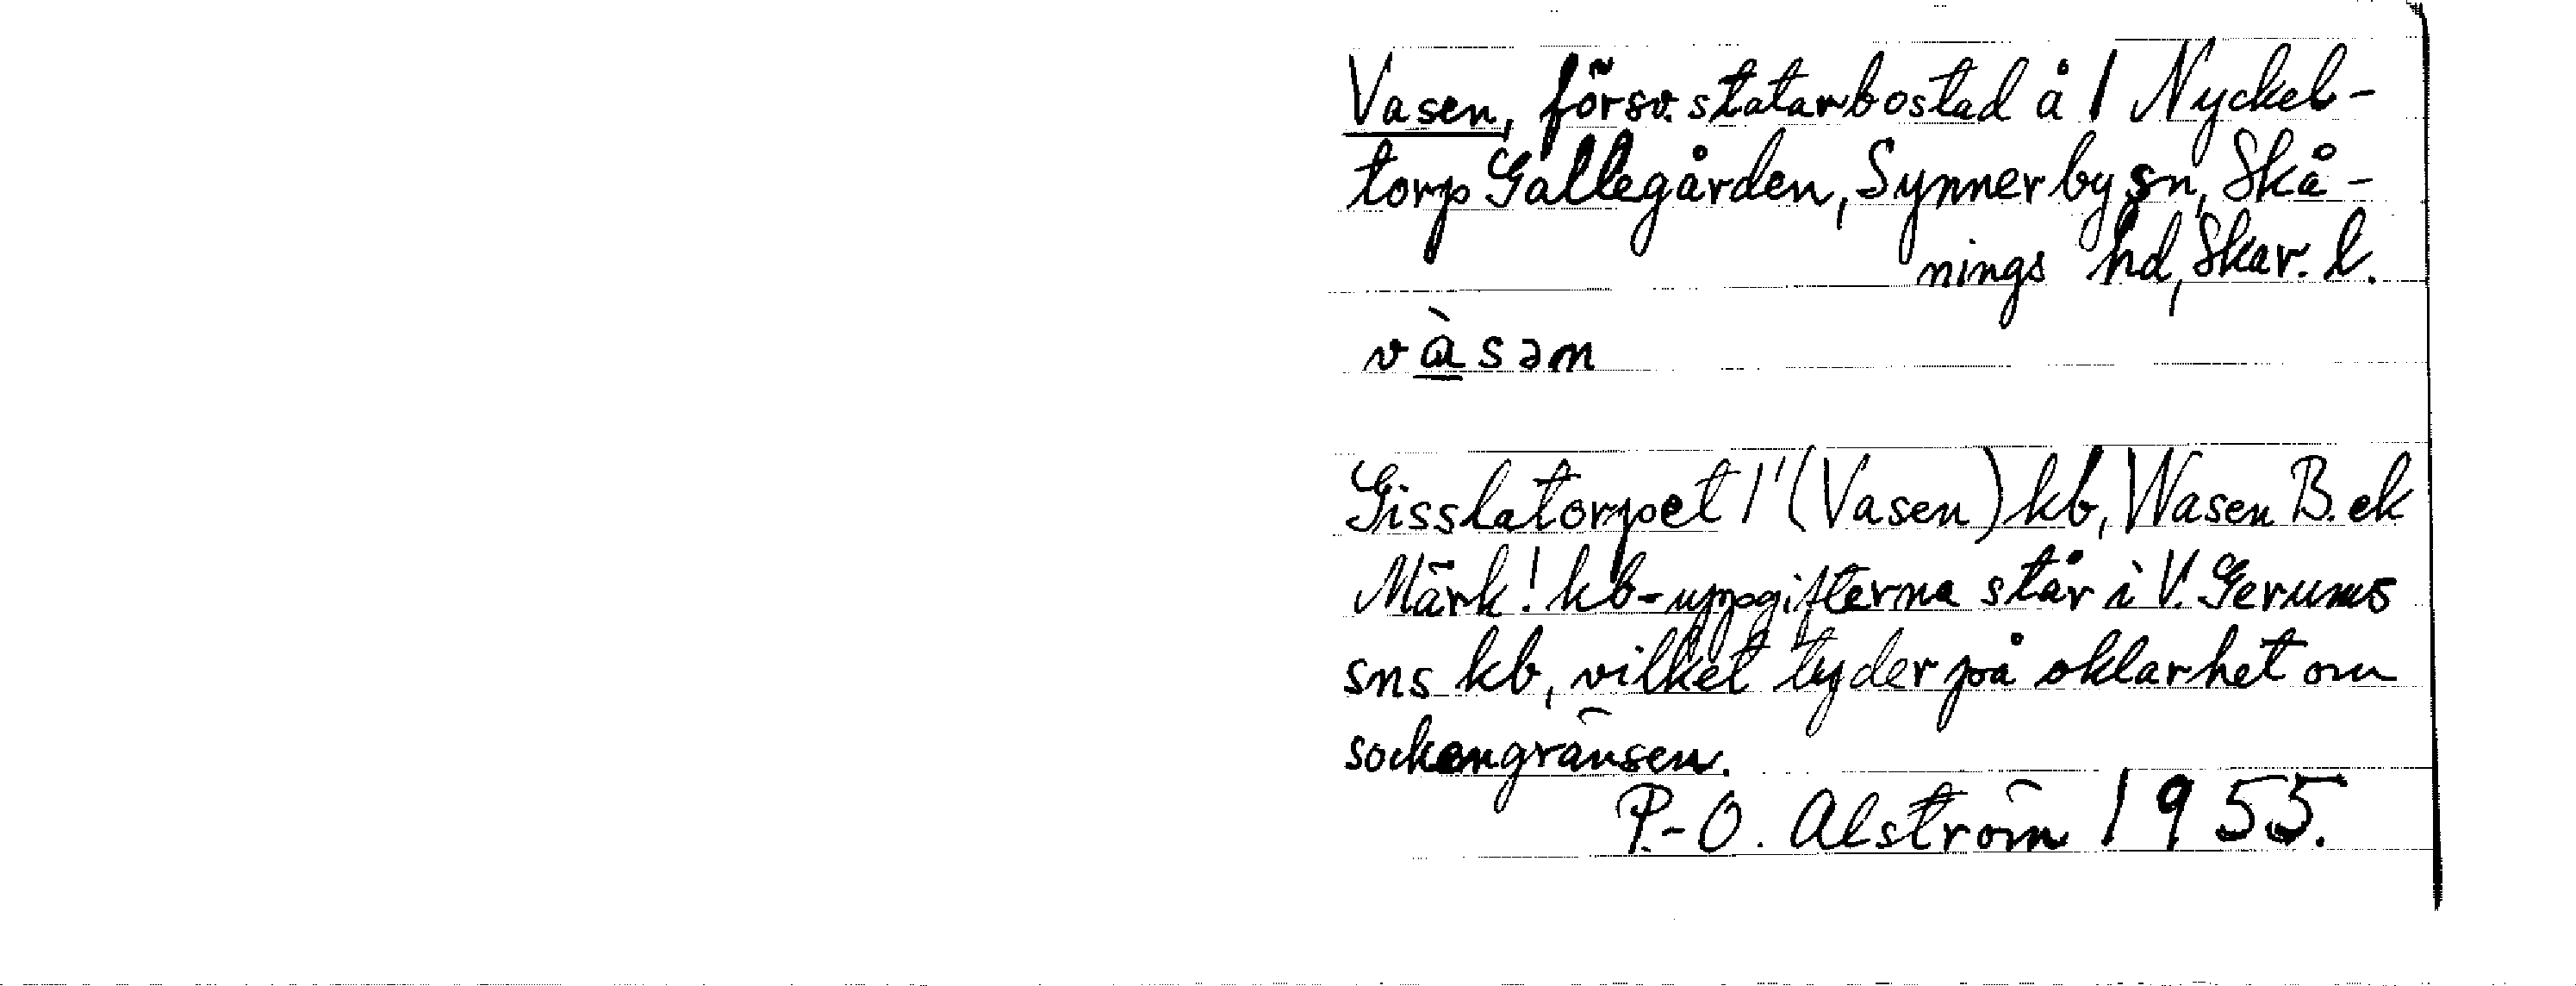 Vasen, försv. statarbostad å 1 Nyckel-
torp Gällegården, Synnerby sn, Skå-
nings hd, Skar. l.
vɑ̀sən
Gisslatorpet 1' (Vasen) kb, Wasen B. ek
Märk! kb-uppgifterna står i V. Gerums
sns kb, vilket tyder på oklarhet om
sockengränsen.
P.-O. Alström 1955.